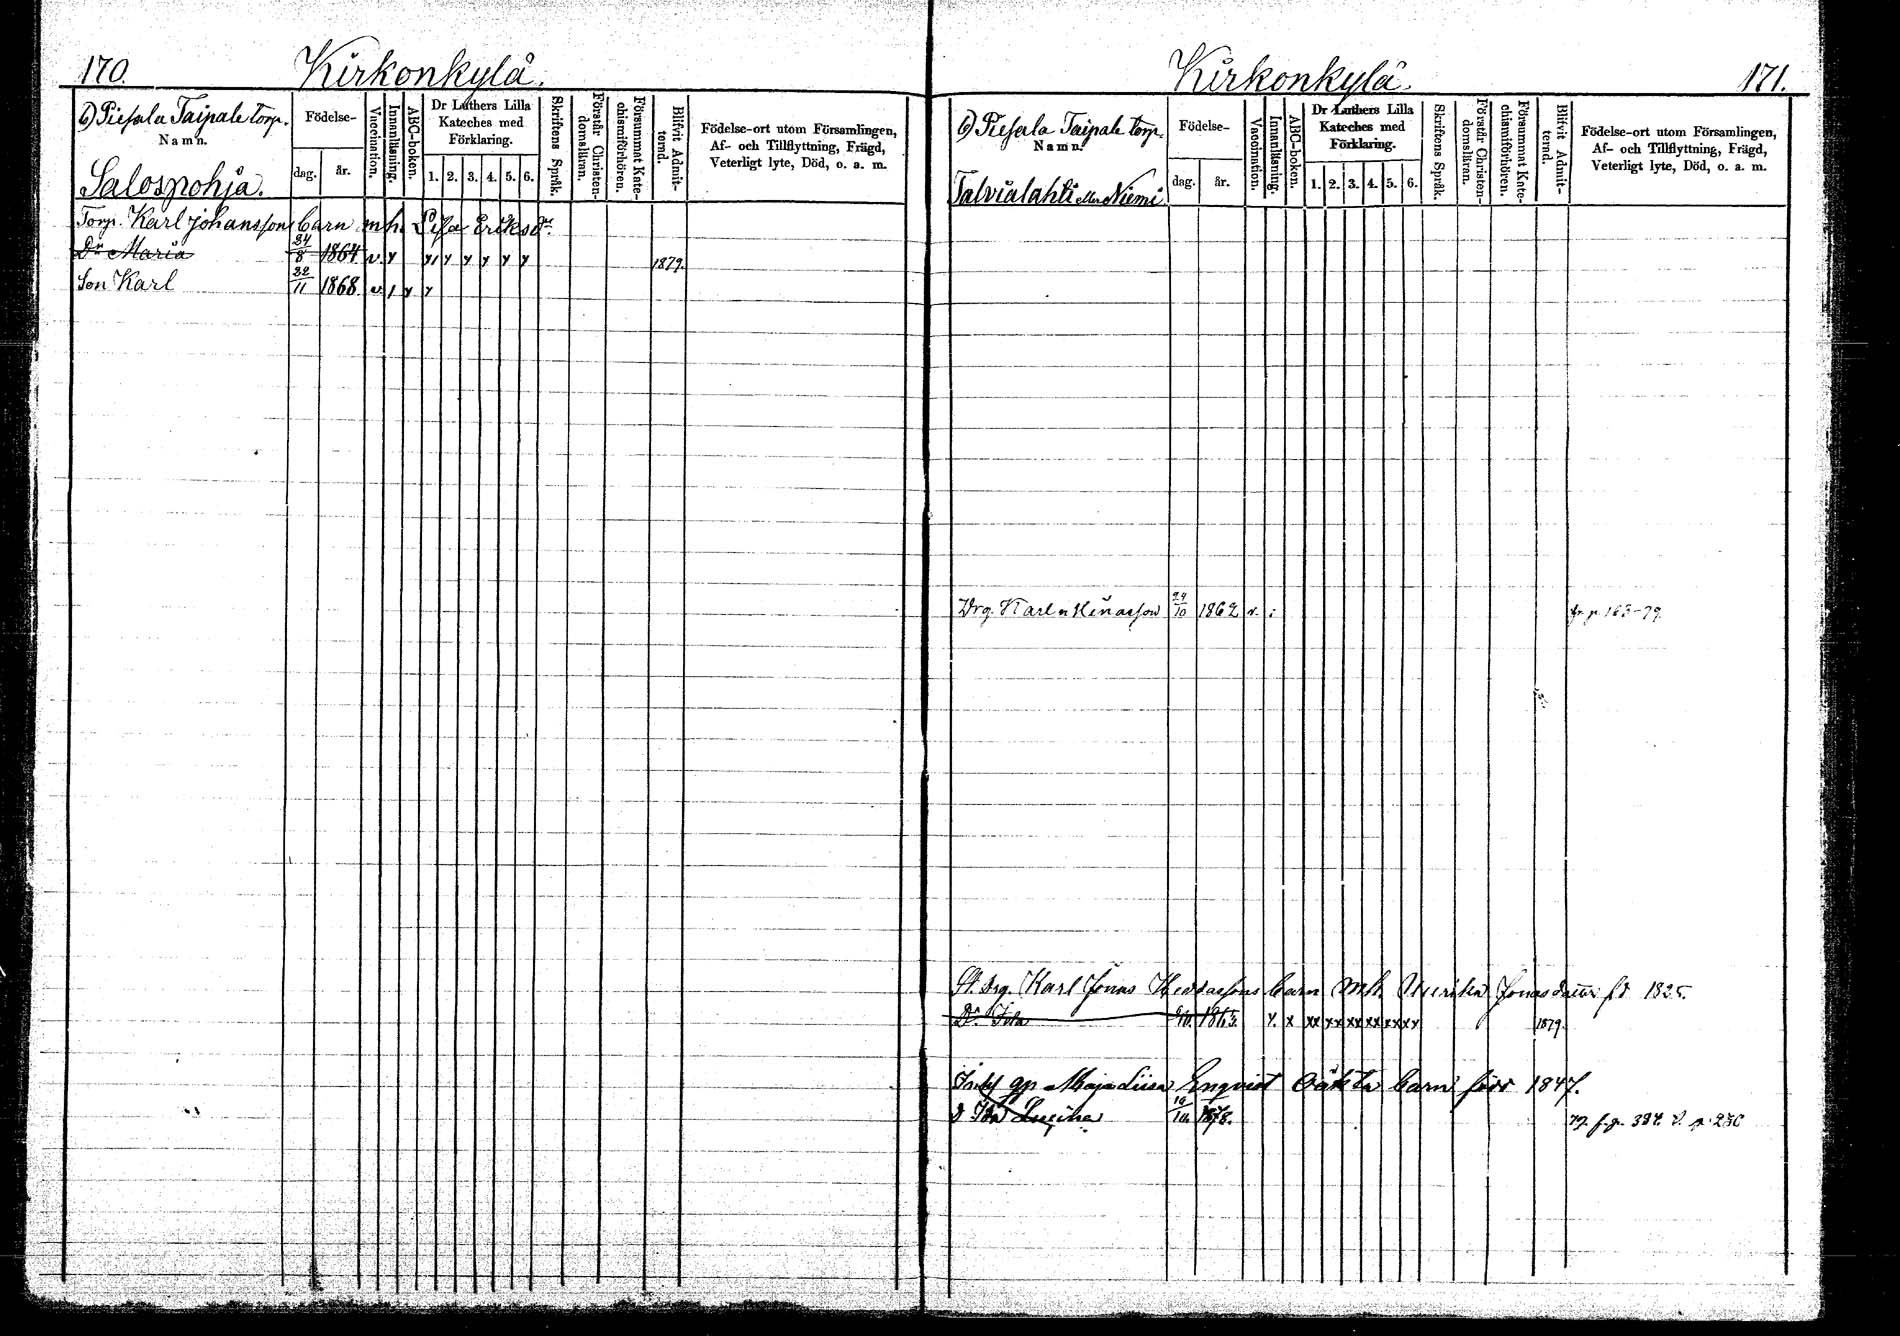 170.
Kirkonkylä.
6) Piesala Taipale torp.
Namn.
Salospohja.
Födelse-
dag.
år.
Vaccination.
Innanläsning.
ABC-boken.
Dr Luthers Lilla
Kateches med
Förklaring.
1. 2. 3. 4. 5. 6.
Skriftens Språk.
Förstår Christen-
domsläran.
Försummat Kate-
chismiförhören.
Blifvit Admit-
terad.
Födelse-ort utom Församlingen,
Af- och Tillflyttning, Frägd,
Veterligt lyte, Död, o. a. m.
Torp. Karl Johansson barn m h. Lisa Eriksdr.
Dr Maria 24/8 1864 v. y y y y y y y 1879.
Son Karl 22/11 1868 v. 1 y y
Kirkonkylä.
171.
6) Piesala Taipale torp.
Namn.
Talvialahti eller Niemi
Födelse-
dag.
år.
Vaccination.
Innanläsning.
ABC-boken.
Dr Luthers Lilla
Kateches med
Förklaring.
1. 2. 3. 4. 5. 6.
Skriftens Språk.
Förstår Christen-
domsläran.
Försummat Kate-
chismiförhören.
Blifvit Admit-
terad.
Födelse-ort utom Församlingen,
Af- och Tillflyttning, Frägd,
Veterligt lyte, Död, o. a. m.
Drg. Karl 24/10 1862 v. fr. p. 163-79.
Drg. Karl Jonas barn m h. Ulrika Jonasdatter fd 1825.
Dr 1863. x xx xx xx xx xx xx 1879.
gp Maja Liisa Enqvist oäkta barn född 1847.
D Ida 10/10 1878. 79 f. p. 384. p. 230